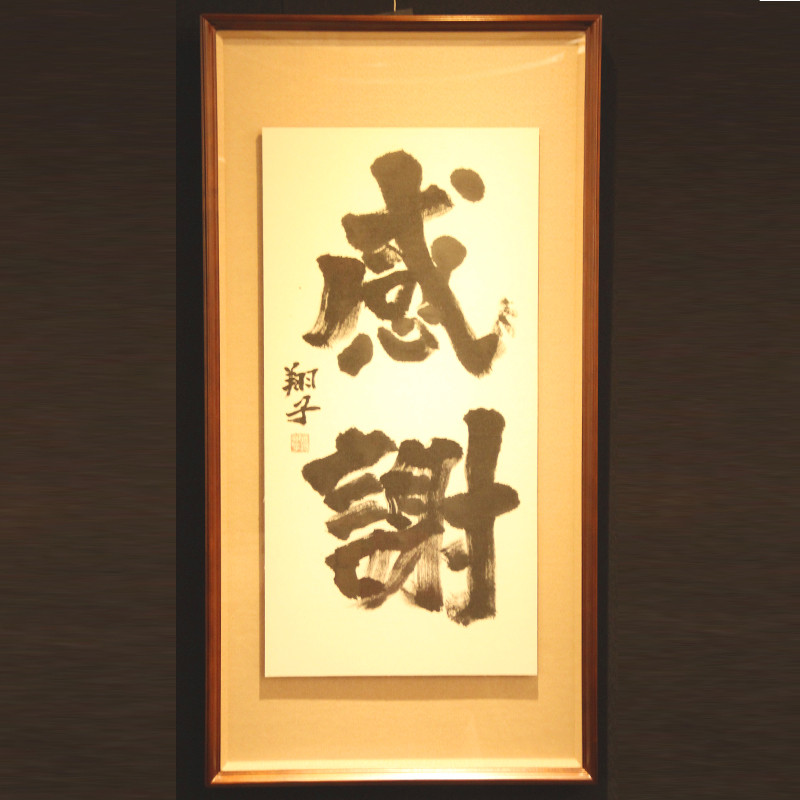 感謝
翔子